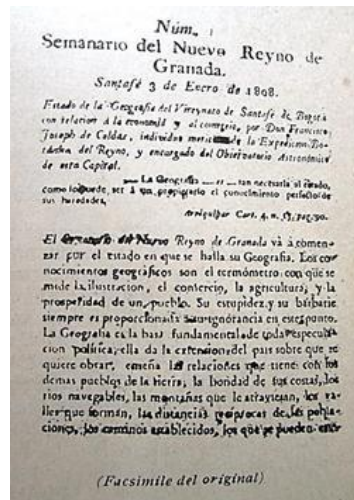 Núm. 1
Semanario del Nuevo Reyno de
Granada.
Santafé 3 de Enero de 1808.
Estado de la Geografia del Vireynato de Santafé de Bogotá
con relacion á la economía y al comercio, por Don Francisco
Joseph de Caldas, individuo meritorio de la Expedicion Bo-
tánica del Reyno, y encargado del Observatorio Astronómico
de esta Capital.
La Geografia es tan necesaria al estado,
como lo puede ser á un propietario el conocimiento perfecto de
sus heredades.
El Semanario del Nuevo Reyno de Granada vá á comen-
zar por el estado en que se halla su Geografia. Los co-
nocimientos geográficos son el termómetro con que se
mide la ilustracion, el comercio, la agricultura, y la
prosperidad de un pueblo. Su estupidez y su barbarie
siempre es proporcionada á su ignorancia en este punto.
La Geografia es la basa fundamental de toda especula-
cion politica; ella da la extension del pais sobre que se
quiere obrar, enseña las relaciones que tiene con los
demas pueblos de la tierra, la bondad de sus costas, los
rios navegables, las montañas que le atraviesan, los va-
lles que forman, las distancias reciprocas de las pobla-
ciones, los caminos establecidos, los que se pueden
(Facsimile del original)